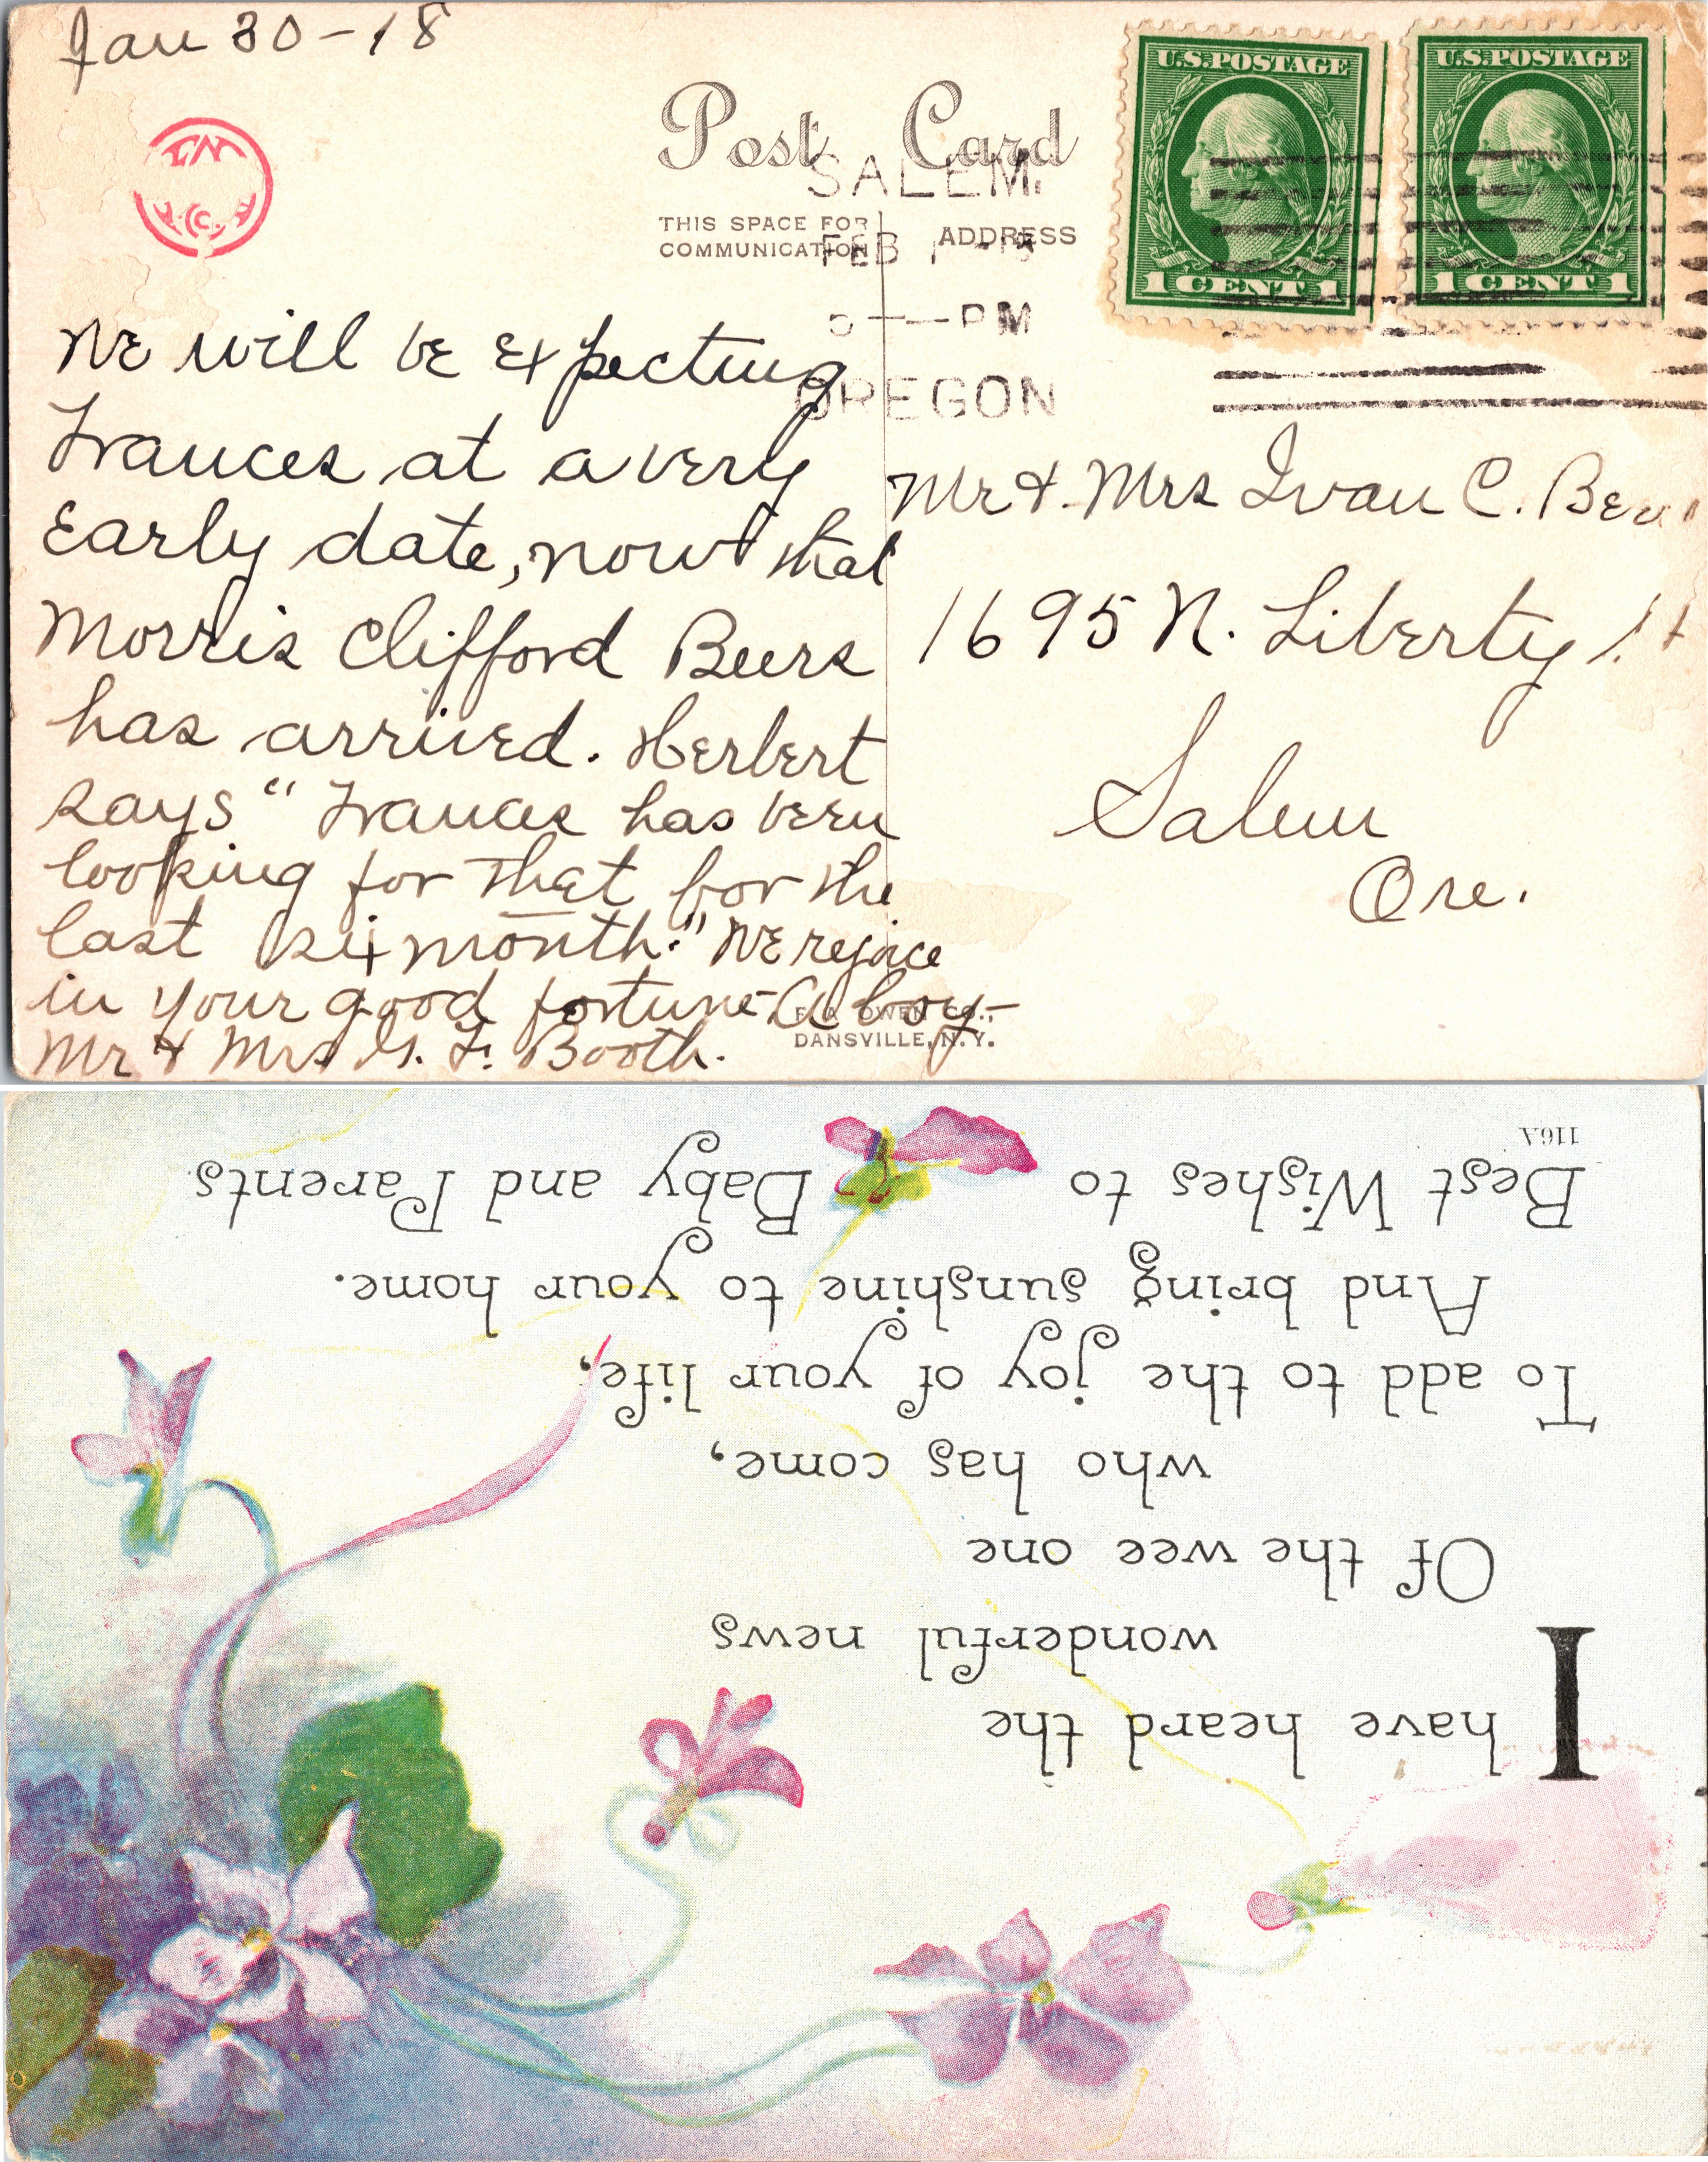 Jan 30-18
Post Card
THIS SPACE FOR
COMMUNICATION
ADDRESS
SALEM.
FEB 1
PM
OREGON
U.S. POSTAGE
1 CENT 1
U.S. POSTAGE
1 CENT 1
We will be expecting
Frances at a very
Early date, now that
Morris Clifford Beers
has arrived. Herbert
says "Frances has been
looking for that for the
last six month." We rejoice
in your good fortune - A boy -
Mr & Mrs G. F. Booth.
Mr & Mrs Ivan C. Beers
1695 N. Liberty St
Salem
Ore.
F. A. OWEN CO.,
DANSVILLE, N.Y.
I have heard the
wonderful news
Of the wee one
who has come,
To add to the joy of your life,
And bring sunshine to your home.
Best Wishes to Baby and Parents
116A